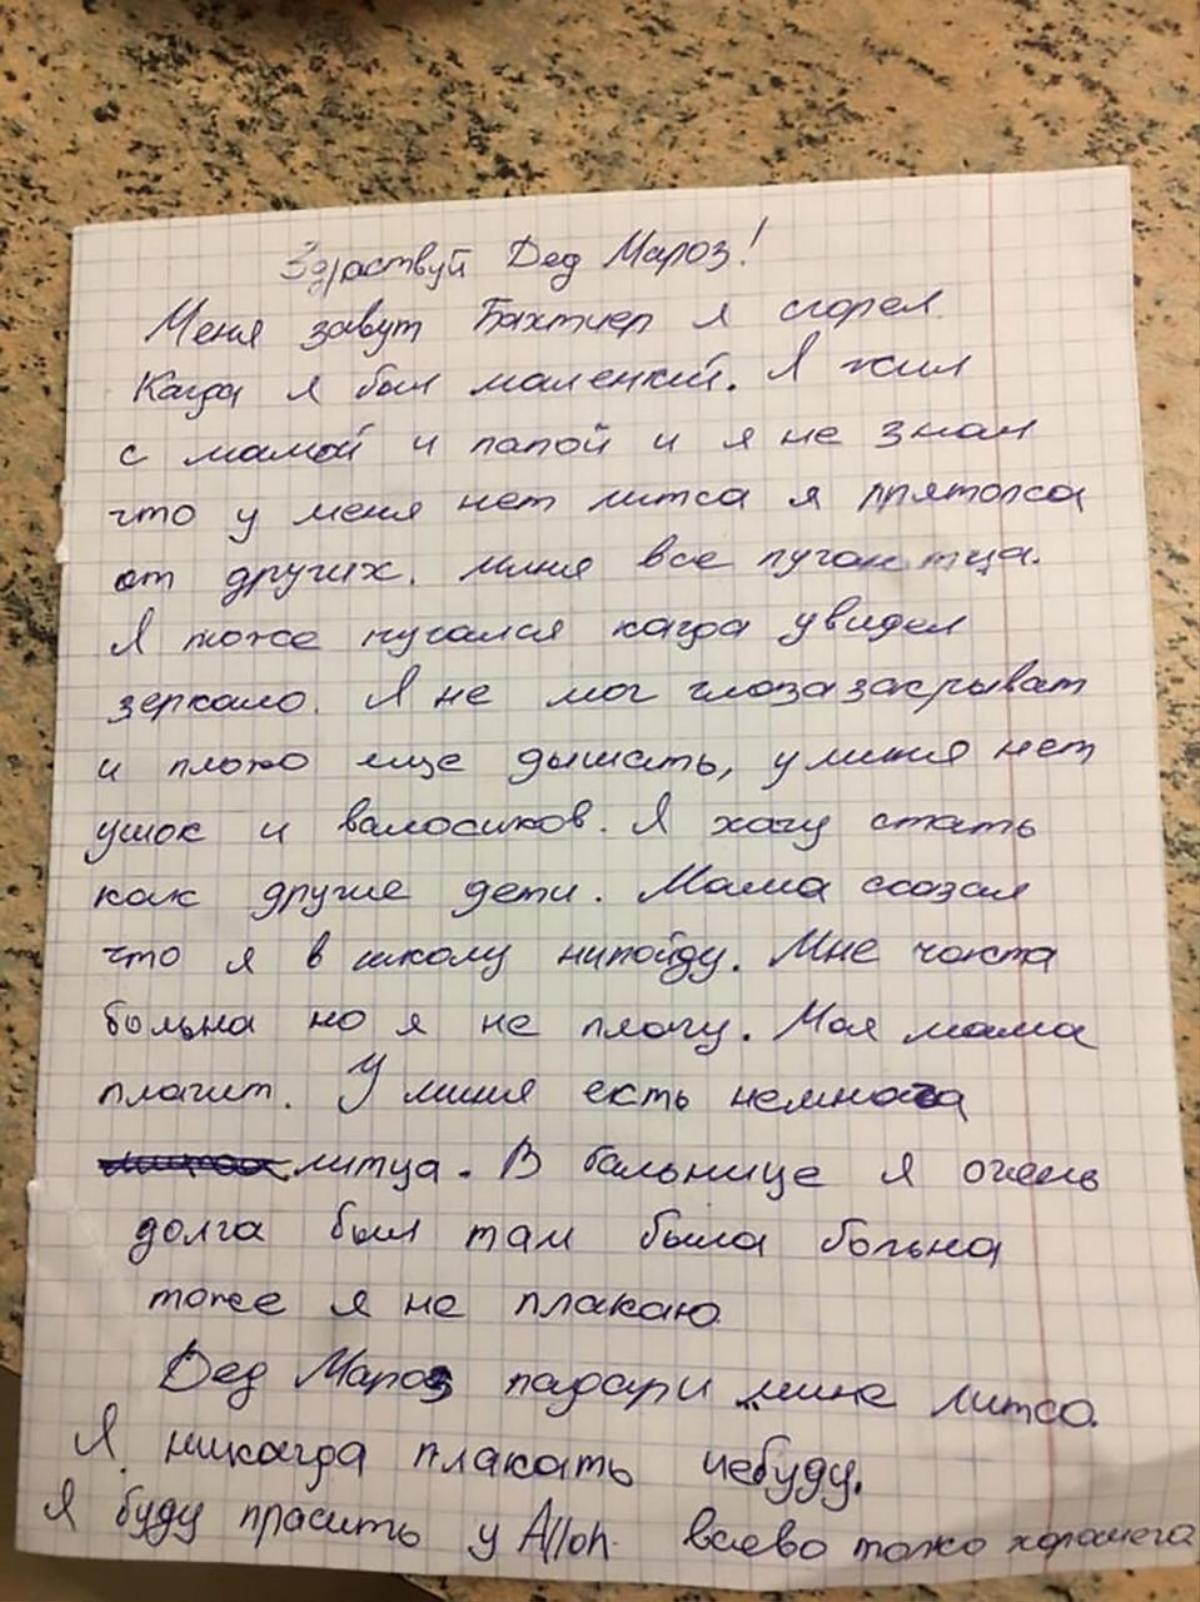 Здраствуй Дед Мароз!
Меня завут Бахтиер я сгорел
Кагда я был маленкий. Я жил
с мамой и папой и я не знал
что у меня нет литса я прятолса
от других. миня все пугаютца.
Я тоже пугался кагда увидел
зеркало. Я не мог глоза закрыват
и плохо еще дышать, у миня нет
ушок и валосиков. Я хачу стать
как другие дети. Мама сказал
что я в школу нипойду. Мне часта
больна но я не плачу. Моя мама
плачит. У миня есть немнога
литца. В бальнице я очень
долга был там была больна
тоже я не плакаю.
Дед Мароз падари мине литсо.
Я никагда плакать небуду.
Я буду прасить у Alloh всево толко харошега